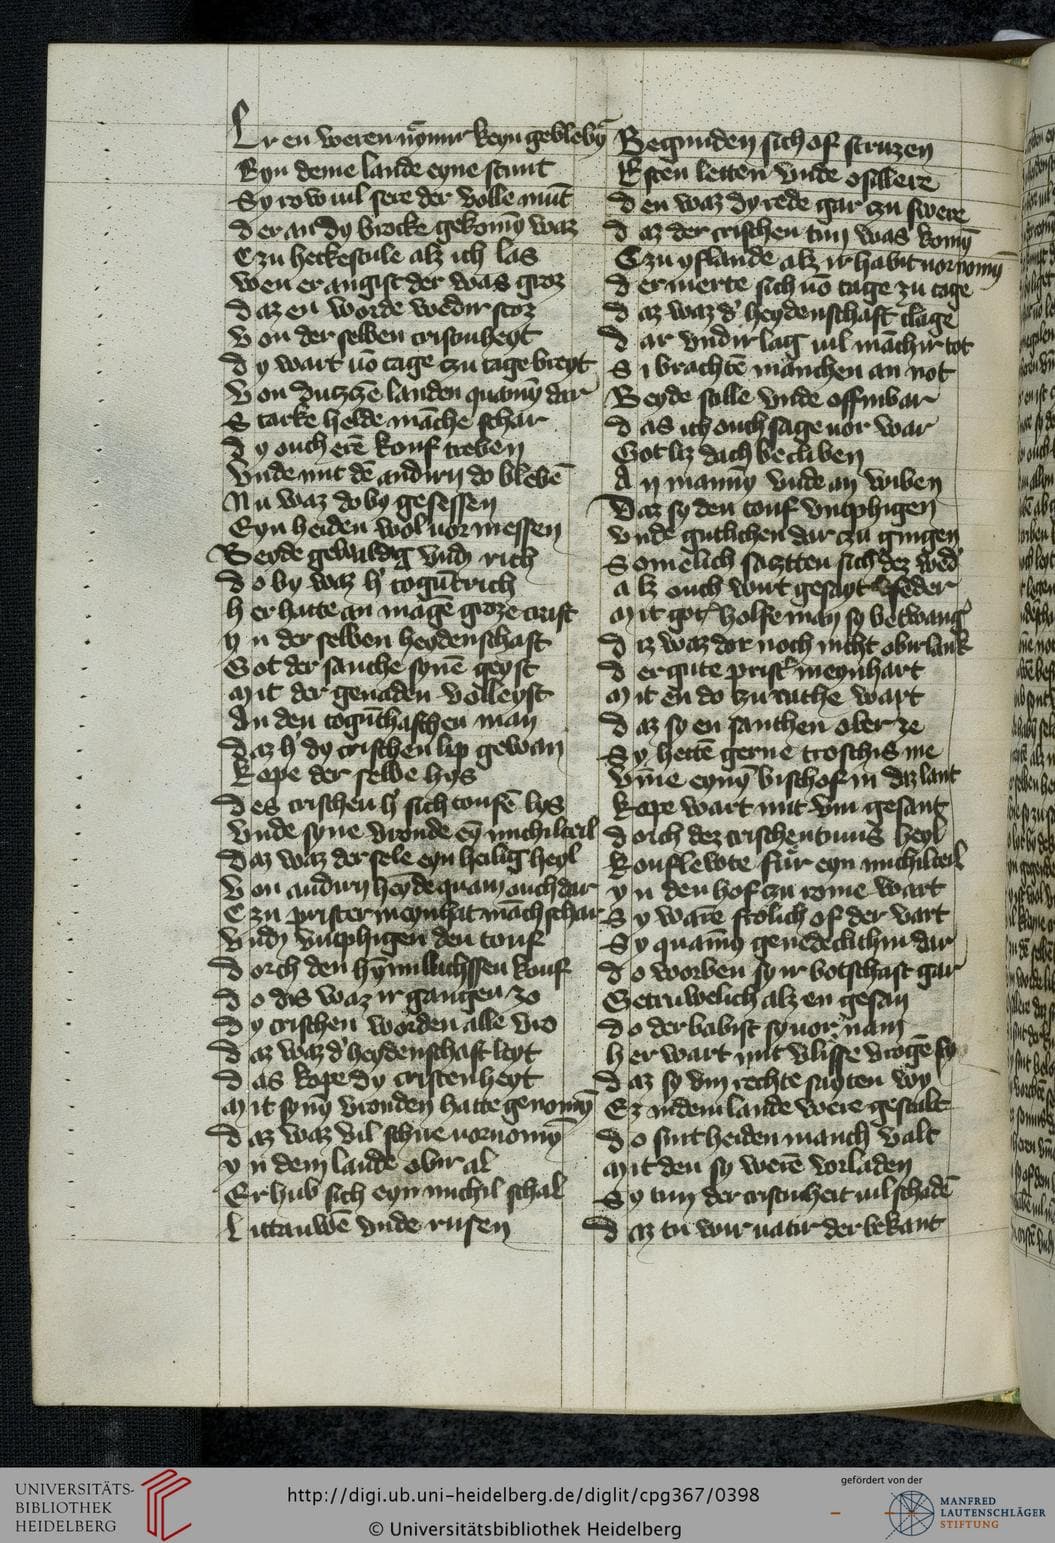 Er en weren nȳmir keyn geblebȳ
Kyn deme lande eyne stunt
Sy row uil sere der volle mūt
der an dy brocke gekomȳ waz
Czu heckescule alz ich las
wen er angist der was groz
daz en worde wedir stoz
von der selben cristinheyt
dy wart uō tage czu tage breyt
von dutzschē landen quamȳ dar
Starke helde māche schar
dy ouch erē kouf treben
vnde mit dē andirn do blebē
Nu waz do by gesessen
Eyn heiden wol uormessen
Beyde geweldig vnd rich
do by waz h' togūtrich
her hatte an magē groze crist
yn der selben heydenschaft
Got der sanche synē geyst
mit der genaden volleyst
An den togūthaftchen man
daz h' dy cristchen lip gewan
Kope der selbe hys
des cristchen h' sich toufē lys
vnde syne vronde eȳ michilteil
daz waz der sele eyn heilig heyl
von andirn heyde quam ouch dar
Czu prister meynhat māch schar
vnd vntphigen den touf
dorch den hȳmilischssen kouf
do dis waz ir gangen zo
dy cristchen worden alle vro
daz waz d' heydenschaft leyt
das kope dy cristenheyt
mit synȳ vronden hatte genomȳ
daz waz vil schire uornomȳ
yn dem lande obir al
Er hub sich eyn michil schal
littauwē vnde rusen
Begunden sich of struzen
Esten letten vnde osillere
den waz dy rede gar czu swere
daz der cristchen tum was komȳ
Czu yflande alz ir habit uornomȳ
der merte sich uō tage zu tage
daz waz d' heydenschaft clage
dar vndir lag uil māchir tot
Si brachtē manchen an not
Beyde stille vnde offinbar
das ich ouch sage uor war
Got liz dach becliben
An mannȳ vnde an wiben
daz sy den touf vntphigen
vnde gutlichen dar czu gingen
Somelich satzten sich dez wed'
alz ouch wirt gesayt seder
mit got' holfe man sy betwang
diz waz dor noch nicht obirlank
der gute prist' meynhart
mit en do czu rathe wart
daz sy en santhen ober ze
Sy hettē gerne troschis me
vmme eynȳ bischof in daz lant
kope wart mit ym gesant
dorch dez cristchentums heyl
kouflewte fur eyn michilteil
yn den hof czu rome wart
Sy warē frolich of der vart
Sy quamȳ genedeclichin dar
do worben sy ir botschaft gar
Getruwelich alz en gesan
do der babist sy uor nam
her wart mit vlisse vrogē sy
daz sy ym rechte sayten wy
Ez in dem lande were gestalt
do sint heiden manch valt
mit den sy werē vorladen
Sy tun der cristinheit uil schadē
daz tu wir uatir der bekant
UNIVERSITÄTS-
BIBLIOTHEK
HEIDELBERG
http://digi.ub.uni-heidelberg.de/diglit/cpg367/0398
© Universitätsbibliothek Heidelberg
gefördert von der
MANFRED
LAUTENSCHLÄGER
STIFTUNG